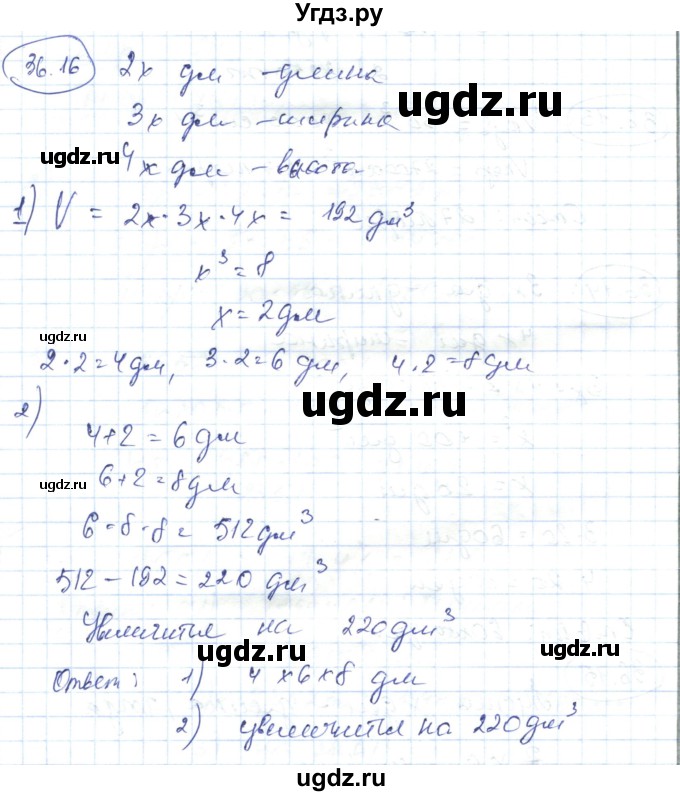 Угдз.ру
36.16 2x дм - длина
ugdz.ru
3x дм - ширина
ugdz.ru
4x дм - высота
1) V = 2x·3x·4x = 192 дм³
x³ = 8
x = 2 дм
ugdz.ru
2·2=4 дм, 3·2=6 дм, 4·2=8 дм
ugdz.ru
2)
4+2 = 6 дм
6+2 = 8 дм
ugdz.ru
6·8·8 = 512 дм³
512 - 192 = 220 дм³
Увеличится на 220 дм³
ugdz.ru
ugdz.ru
Ответ: 1) 4 x 6 x 8 дм
2) увеличится на 220 дм³
ugdz.ru
ugdz.ru
ugdz.ru